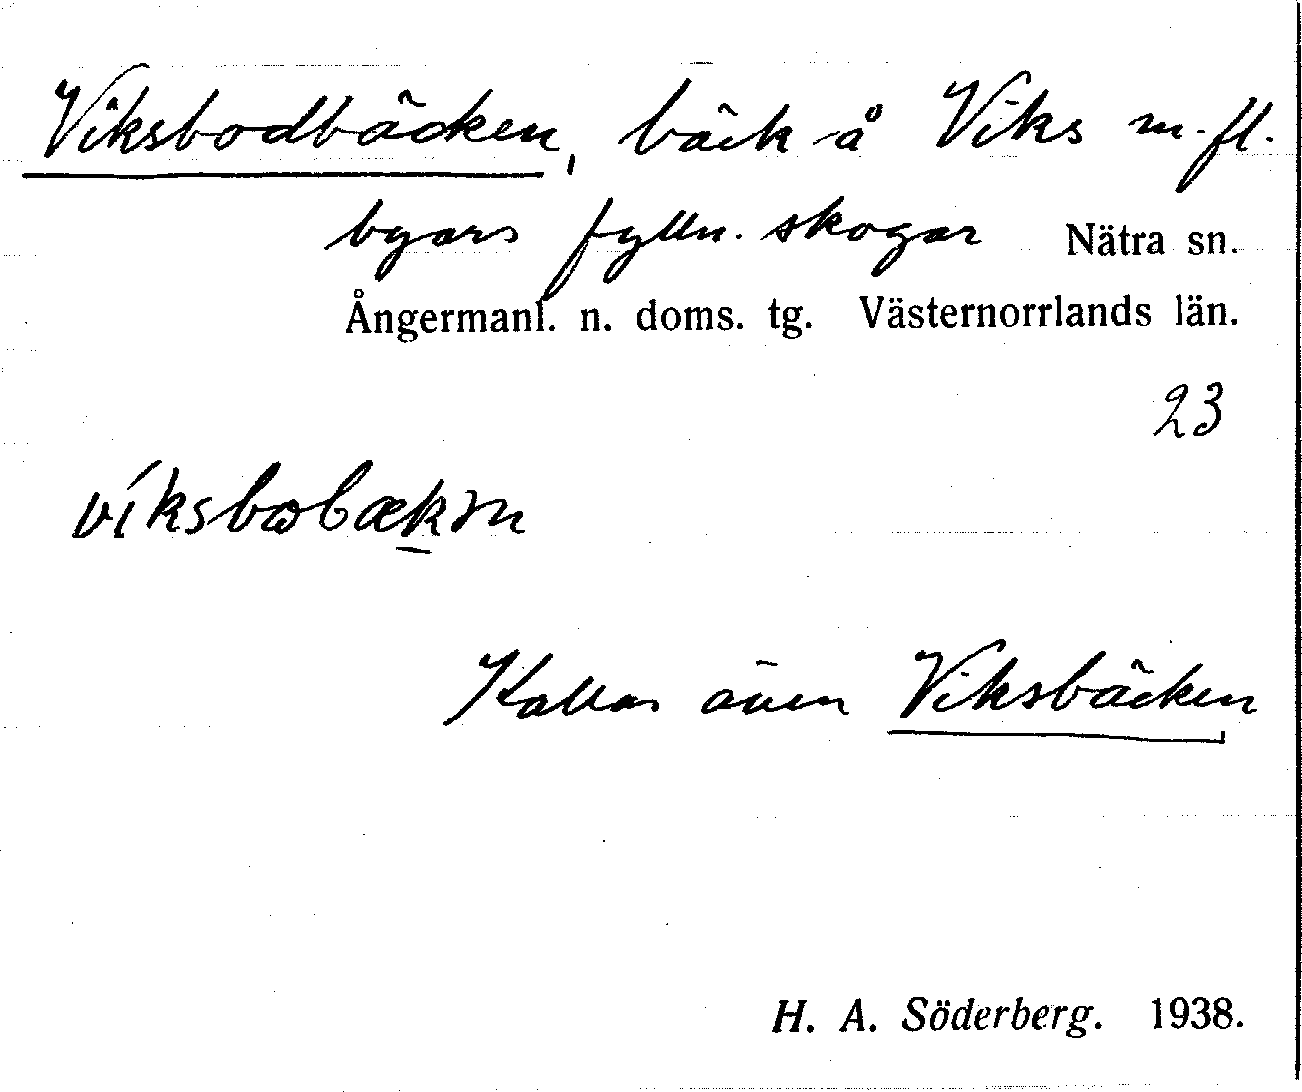 Viksbodbäcken, bäck å Viks m.fl.
byars fylln. skogar Nätra sn.
Ångermanl. n. doms. tg. Västernorrlands län.
23
Kallas även Viksbäcken
H. A. Söderberg. 1938.